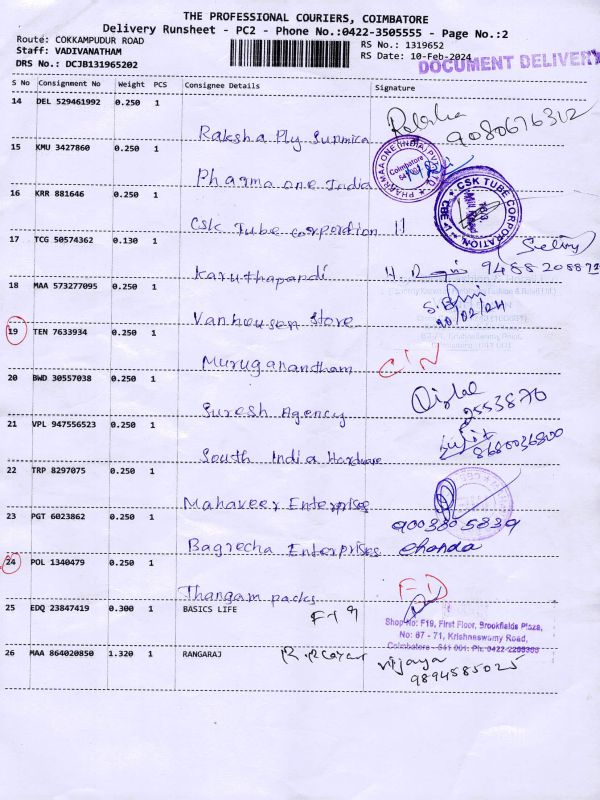 THE PROFESSIONAL COURIERS, COIMBATORE
Delivery Runsheet - PC2 - Phone No.:0422-3505555 - Page No.:2
Route: COKKAMPUDUR ROAD
Staff: VADIVANATHAM
DRS No.: DCJB131965202
RS No.: 1319652
RS Date: 10-Feb-2024
DOCUMENT DELIVERY
S No Consignment No Weight PCS Consignee Details Signature
14 DEL 529461992 0.250 1
Raksha Ply Sunmica 9080676312
15 KMU 3427860 0.250 1
Pharma one India
PHARMAAONE (INDIA) PVT LTD
Coimbatore
16 KRR 881646 0.250 1
Csk Tube corportion 11
CSK TUBE CORPORATION
CBE
17 TCG 50574362 0.130 1
Karuthapandi 9488208872
18 MAA 573277095 0.250 1
Vanheusen Store
10/02/24
19 TEN 7633934 0.250 1
Muruganandham C/N
20 BWD 30557038 0.250 1
Suresh Agency
2553870
21 VPL 947556523 0.250 1
South India Hardware 8680036800
22 TRP 8297075 0.250 1
Mahaveer Enterprises
23 PGT 6023862 0.250 1
9003805839
Bagrecha Enterprises chanda
24 POL 1340479 0.250 1
Thangam packs
25 EDQ 23847419 0.300 1 BASICS LIFE F-19
Shop No: F19, First Floor, Brookfields Plaza,
No: 67 - 71, Krishnaswamy Road,
Coimbatore - 641 001. Ph: 0422-2255355
26 MAA 864020850 1.320 1 RANGARAJ
vijaya
9894585025